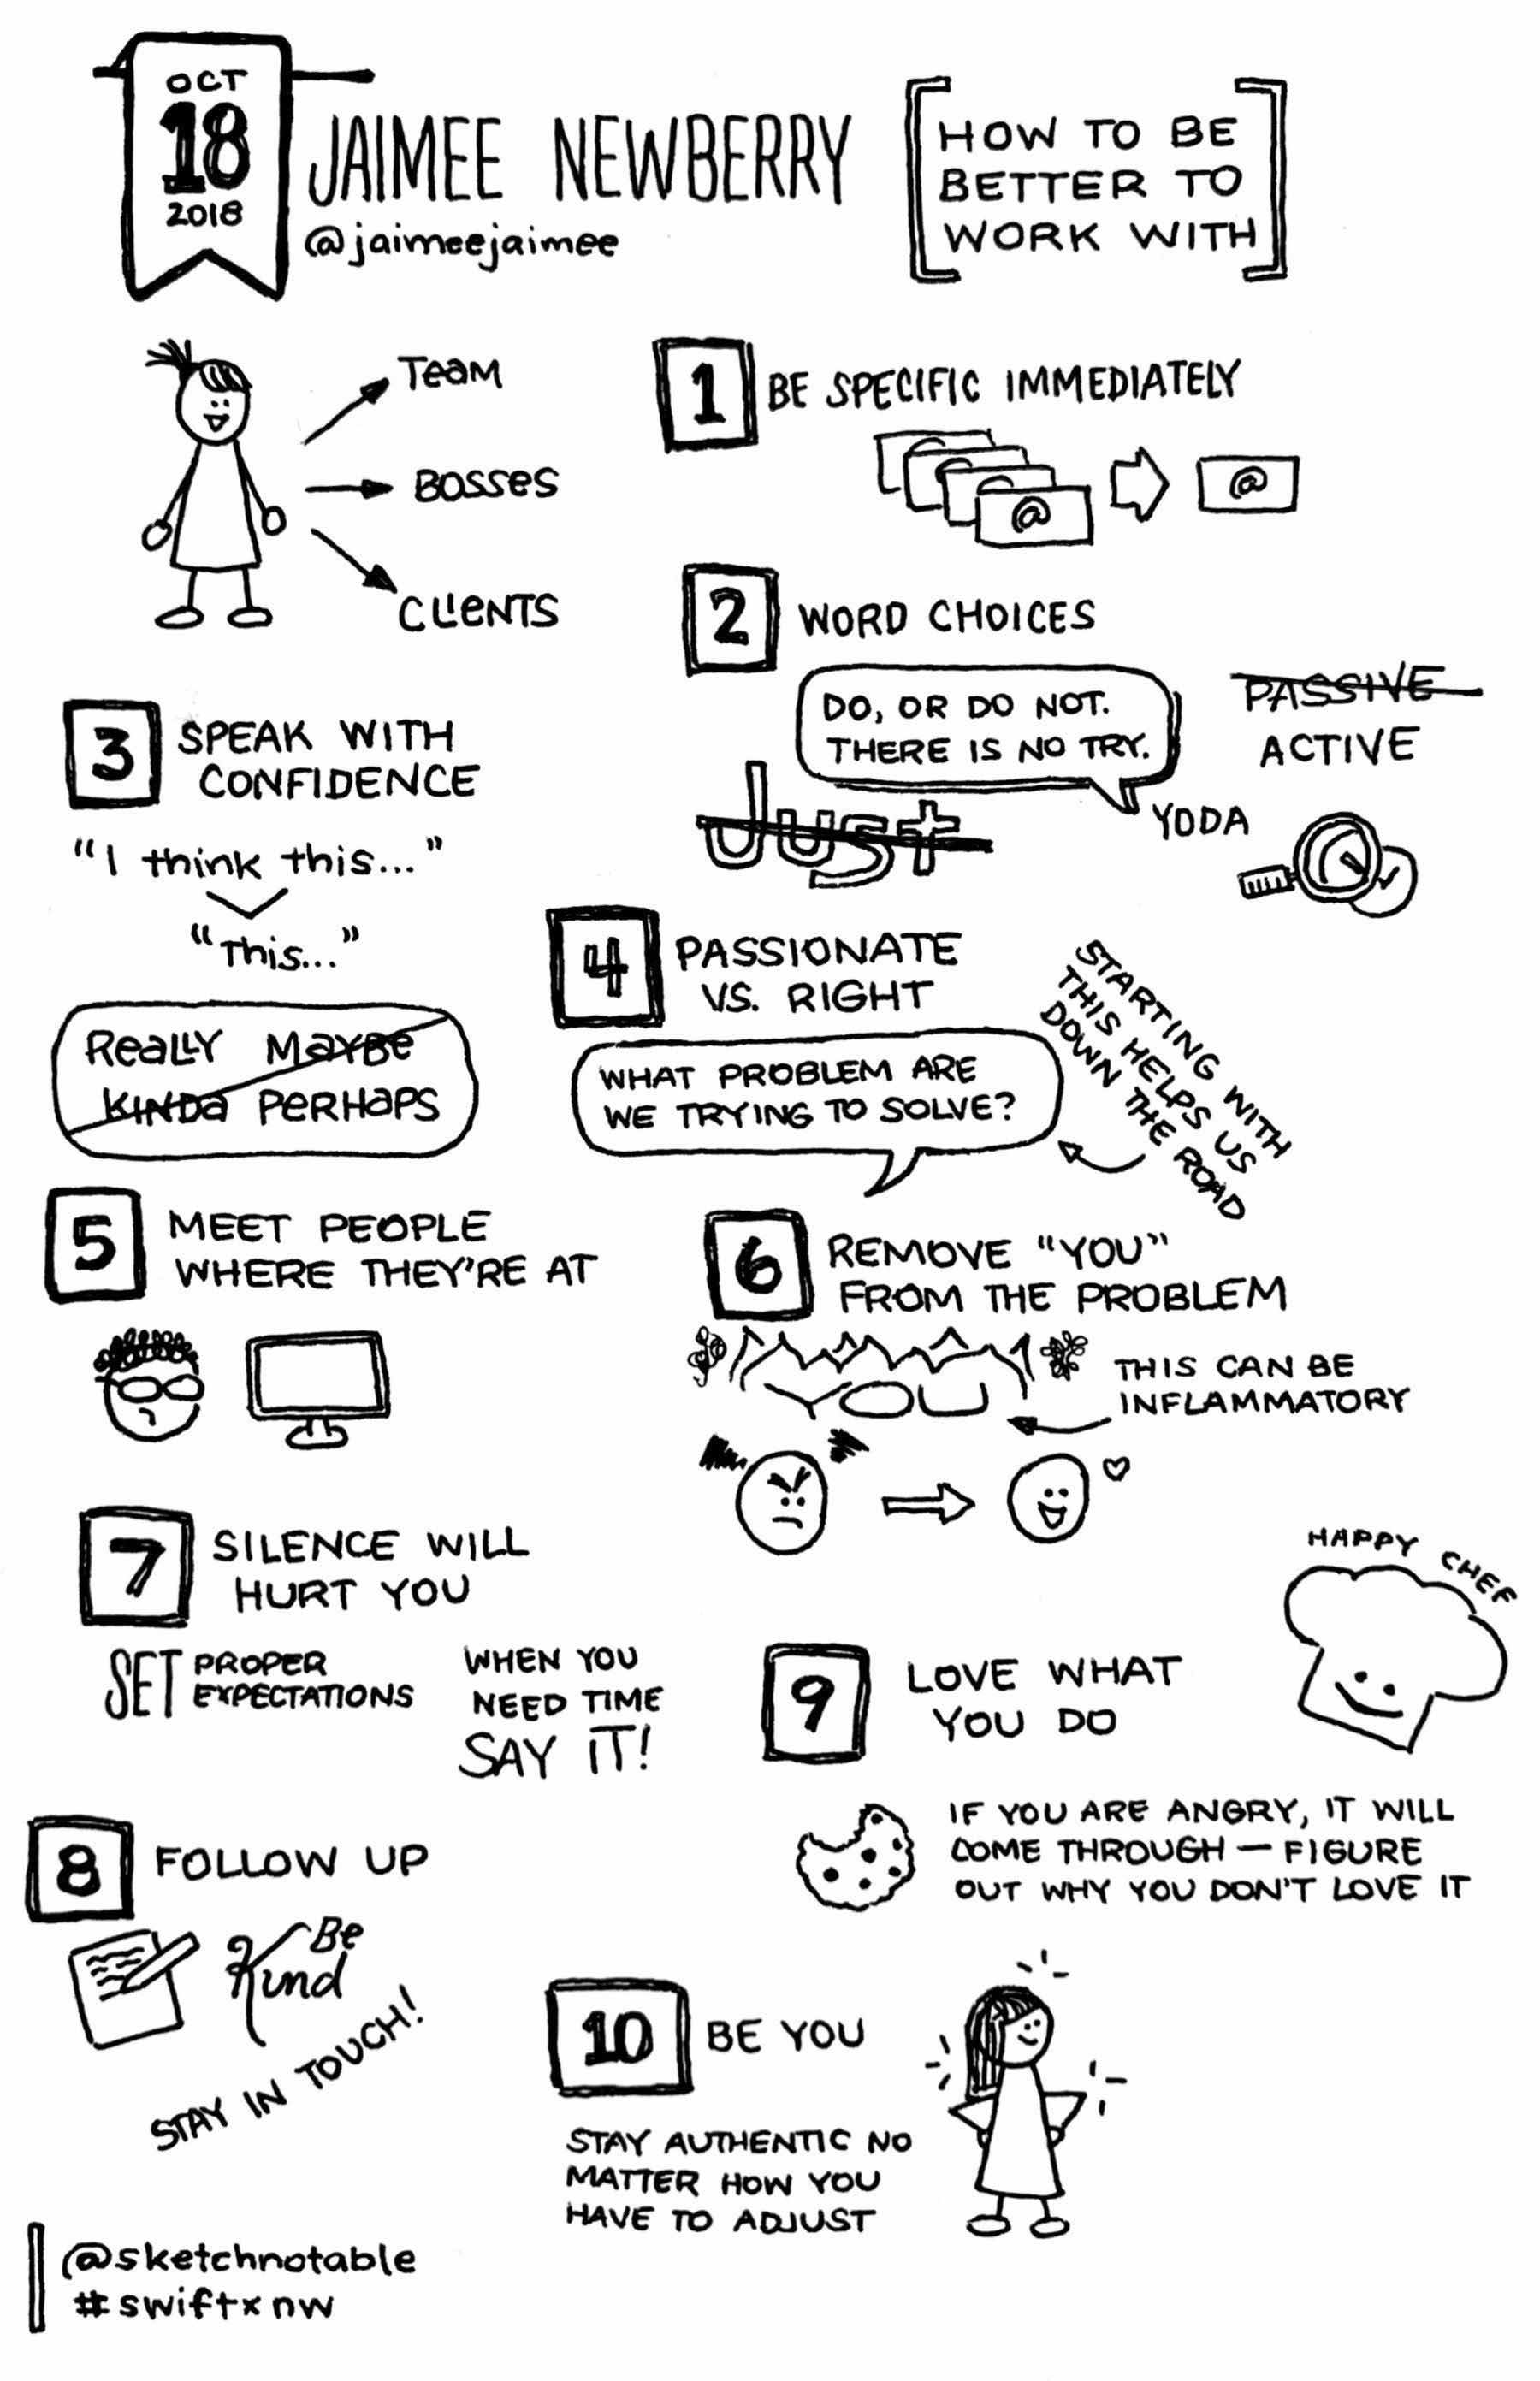 OCT
18
2018
JAIMEE NEWBERRY
@jaimeejaimee
HOW TO BE
BETTER TO
WORK WITH
TEAM
BOSSES
CLIENTS
1 BE SPECIFIC IMMEDIATELY
@
@
2 WORD CHOICES
DO, OR DO NOT.
THERE IS NO TRY.
YODA
PASSIVE
ACTIVE
Just
3 SPEAK WITH
CONFIDENCE
"I think this..."
"This..."
REALLY MAYBE
KINDA PERHAPS
4 PASSIONATE
VS. RIGHT
WHAT PROBLEM ARE
WE TRYING TO SOLVE?
STARTING WITH
THIS HELPS US
DOWN THE ROAD
5 MEET PEOPLE
WHERE THEY'RE AT
6 REMOVE "YOU"
FROM THE PROBLEM
YOU
THIS CAN BE
INFLAMMATORY
7 SILENCE WILL
HURT YOU
SET PROPER
EXPECTATIONS
WHEN YOU
NEED TIME
SAY IT!
8 FOLLOW UP
Be
Kind
STAY IN TOUCH!
9 LOVE WHAT
YOU DO
HAPPY CHEF
IF YOU ARE ANGRY, IT WILL
COME THROUGH — FIGURE
OUT WHY YOU DON'T LOVE IT
10 BE YOU
STAY AUTHENTIC NO
MATTER HOW YOU
HAVE TO ADJUST
@sketchnotable
#swiftxnw